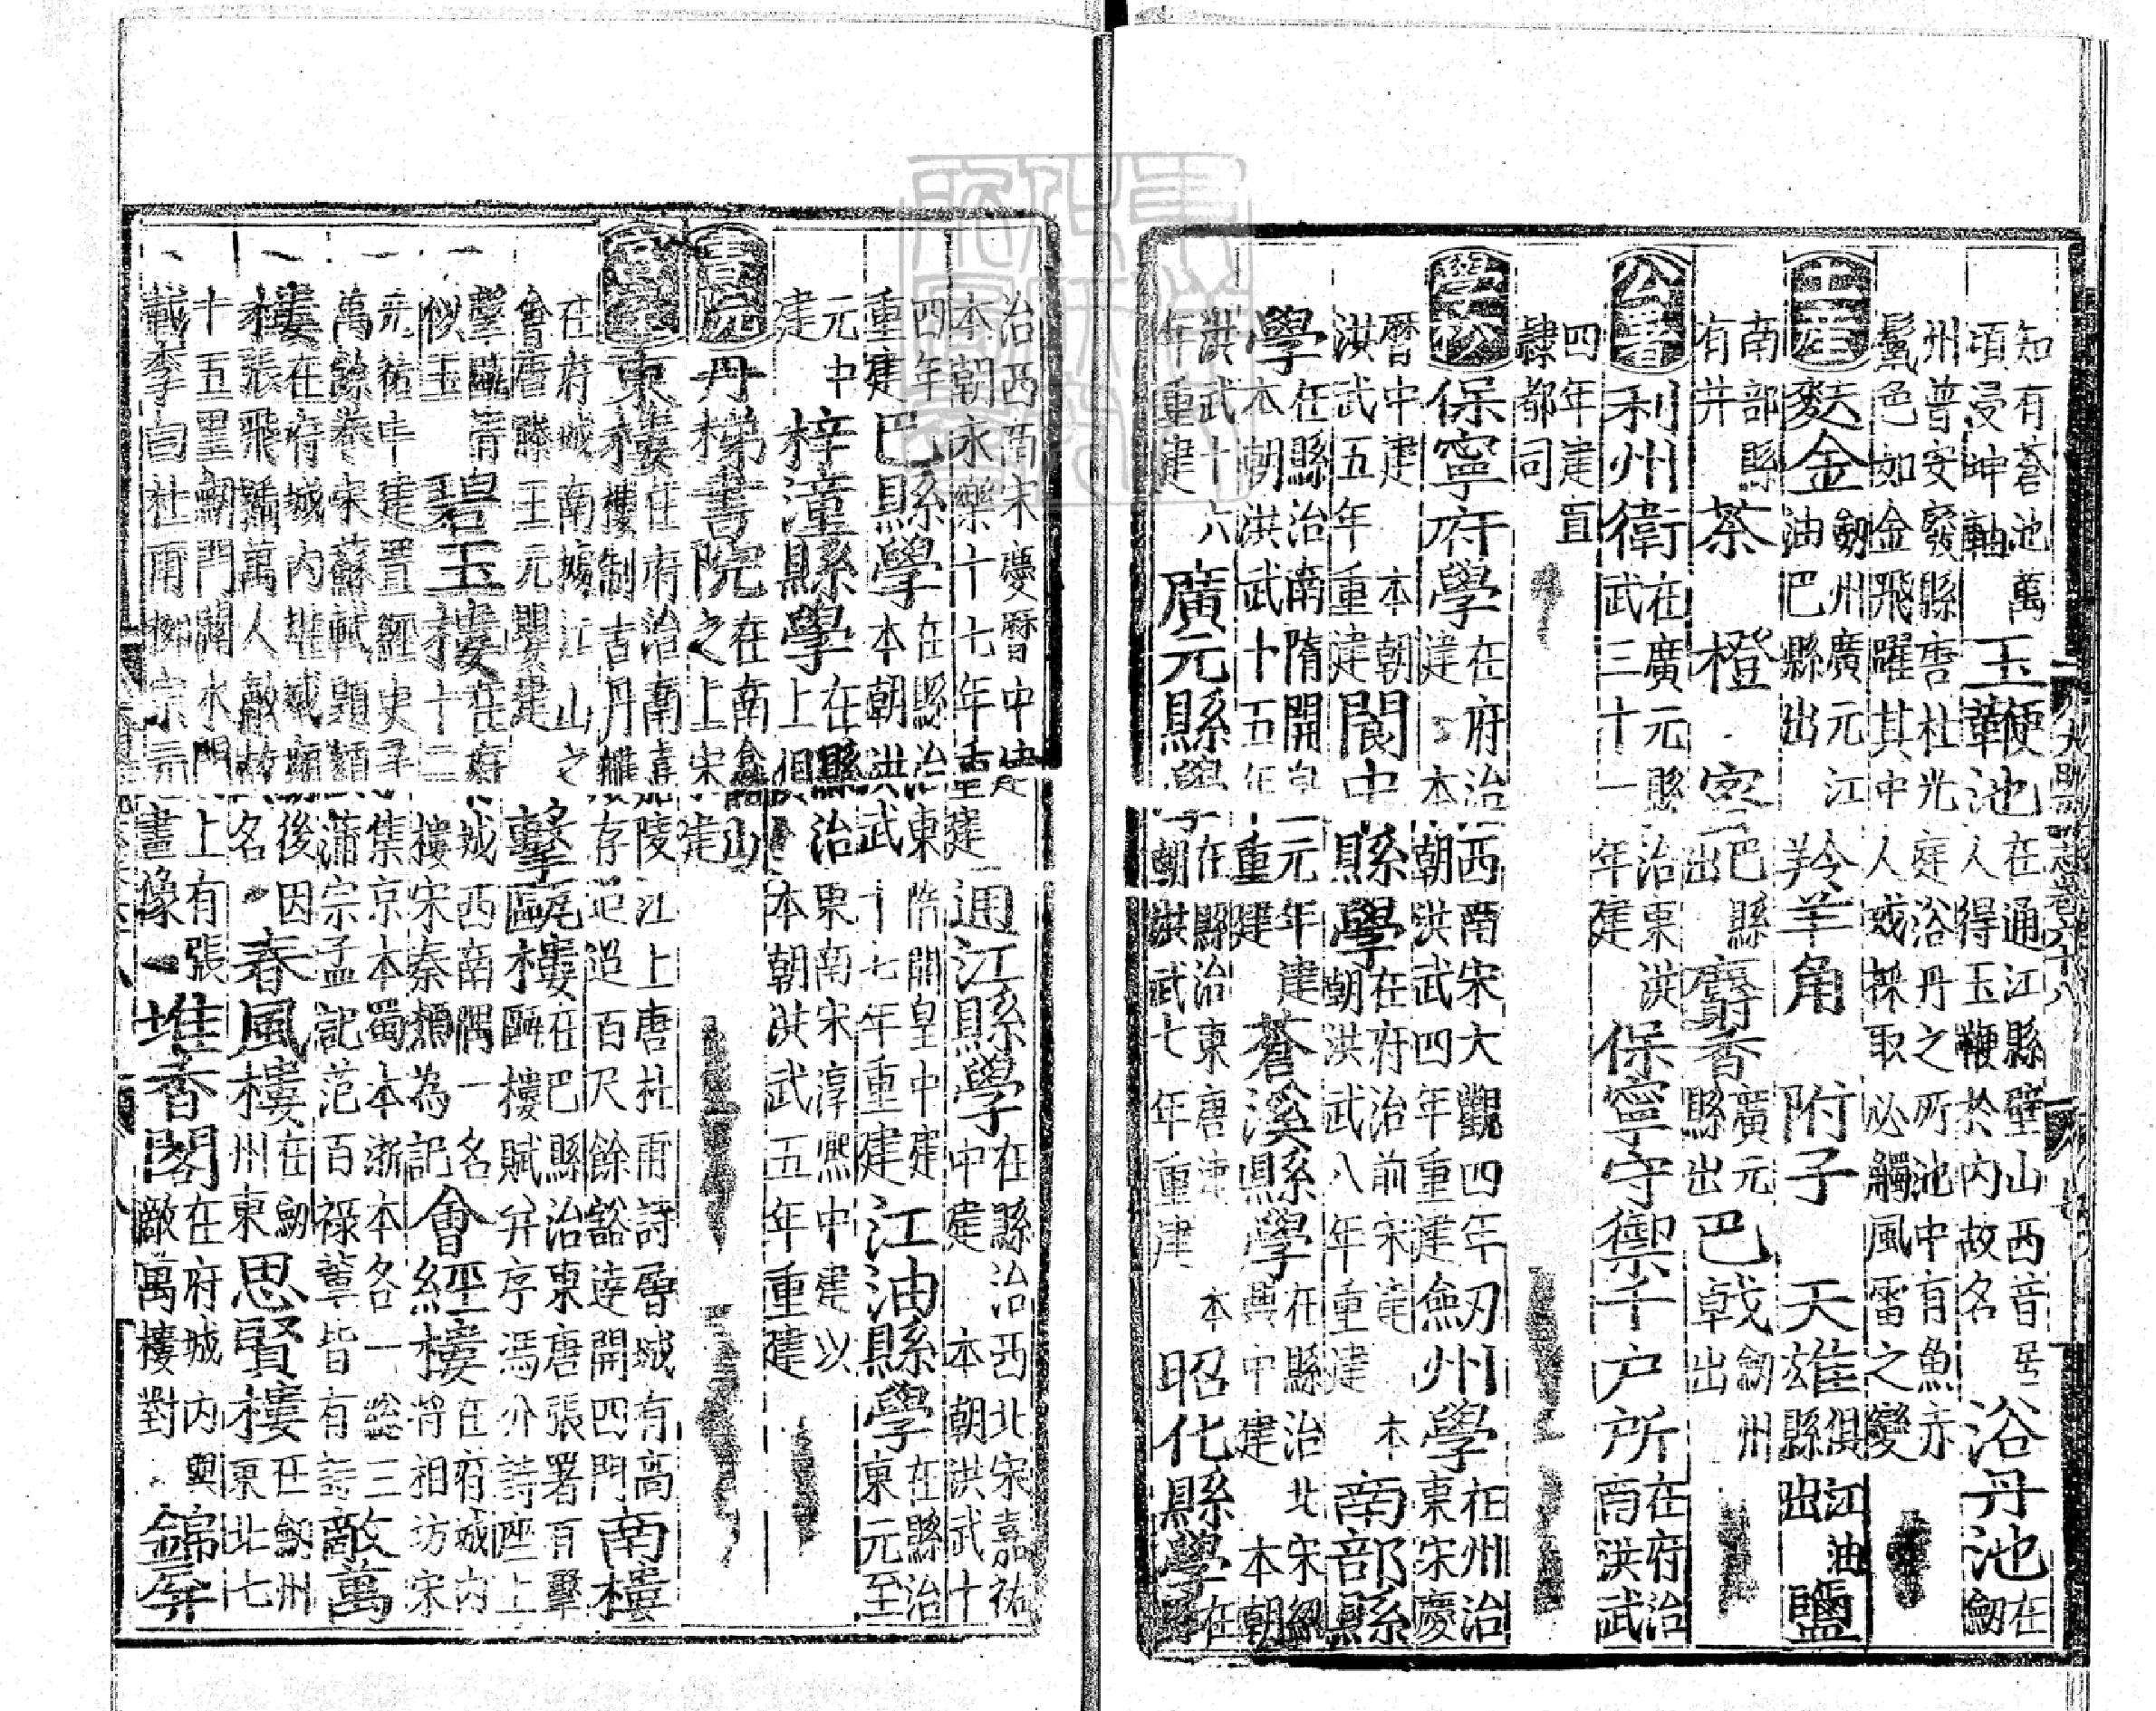 知有蒼池萬頃浸坤軸 玉鞭池在通江縣壁山西音居人得玉鞭於內故名 浴丹池在劒
州普安廢縣唐杜光庭浴丹之所池中有魚赤鬣色如金飛躍其中人或採取必觸風雷之變
土產 麩金劒州廣元江油巴縣出 羚羊角 附子 天雄俱江油縣出 鹽
南部縣有井 茶 橙 密巴縣出 麝香廣元縣出 巴戟劒州出
公署 利州衛在廣元縣治東洪武三十一年建 保寧守禦千戶所在府治南洪武
四年建直隸都司
學校 保寧府學在府治西南宋大觀四年建本朝洪武四年重建 劒州學在州治東宋慶
曆中建本朝洪武五年重建 閬中縣學在府治前宋建本朝洪武八年重建 南部縣
學在縣治南隋開皇元年建本朝洪武十五年重建 蒼溪縣學在縣治北宋紹興中建本朝
洪武十六年重建 廣元縣學在縣治東唐建本朝洪武七年重建 昭化縣學在
治西宋慶曆中建本朝永樂十七年重建 通江縣學在縣治西北宋嘉祐中建本朝洪武十
四年重建 巴縣學在縣治東隋開皇中建本朝洪武十七年重建 江油縣學在縣治東元至
元中建 梓潼縣學在縣治東南宋淳熙中建以上俱本朝洪武五年重建
書院 丹梯書院在南龕山之上宋建
宮室 東樓在府治南嘉陵江上唐杜甫詩層城有高樓制古丹雘存迢迢百尺餘豁達開四門 南樓
在府城南據江山之會唐滕王元嬰建 擊甌樓在巴縣治東唐張署百擊甌樓賦并序馮分詩座上
擊甌清似玉 碧玉樓在府城西南隅一名十二樓宋秦為記 會經樓在府城內將相坊宋
元祐中建置經史子集京本蜀本浙本各一總三萬餘卷宋蘇軾題額蒲宗孟記范百祿輩皆有詩 敵萬
樓在府城內桓侯廟後因張飛號萬人敵故名 春風樓在劒州東 思賢樓在劒州東北七
十五里劒門關水門上有張載李白杜甫柳宗元畫像 堆香閣在府城內與敵萬樓對 錦屏